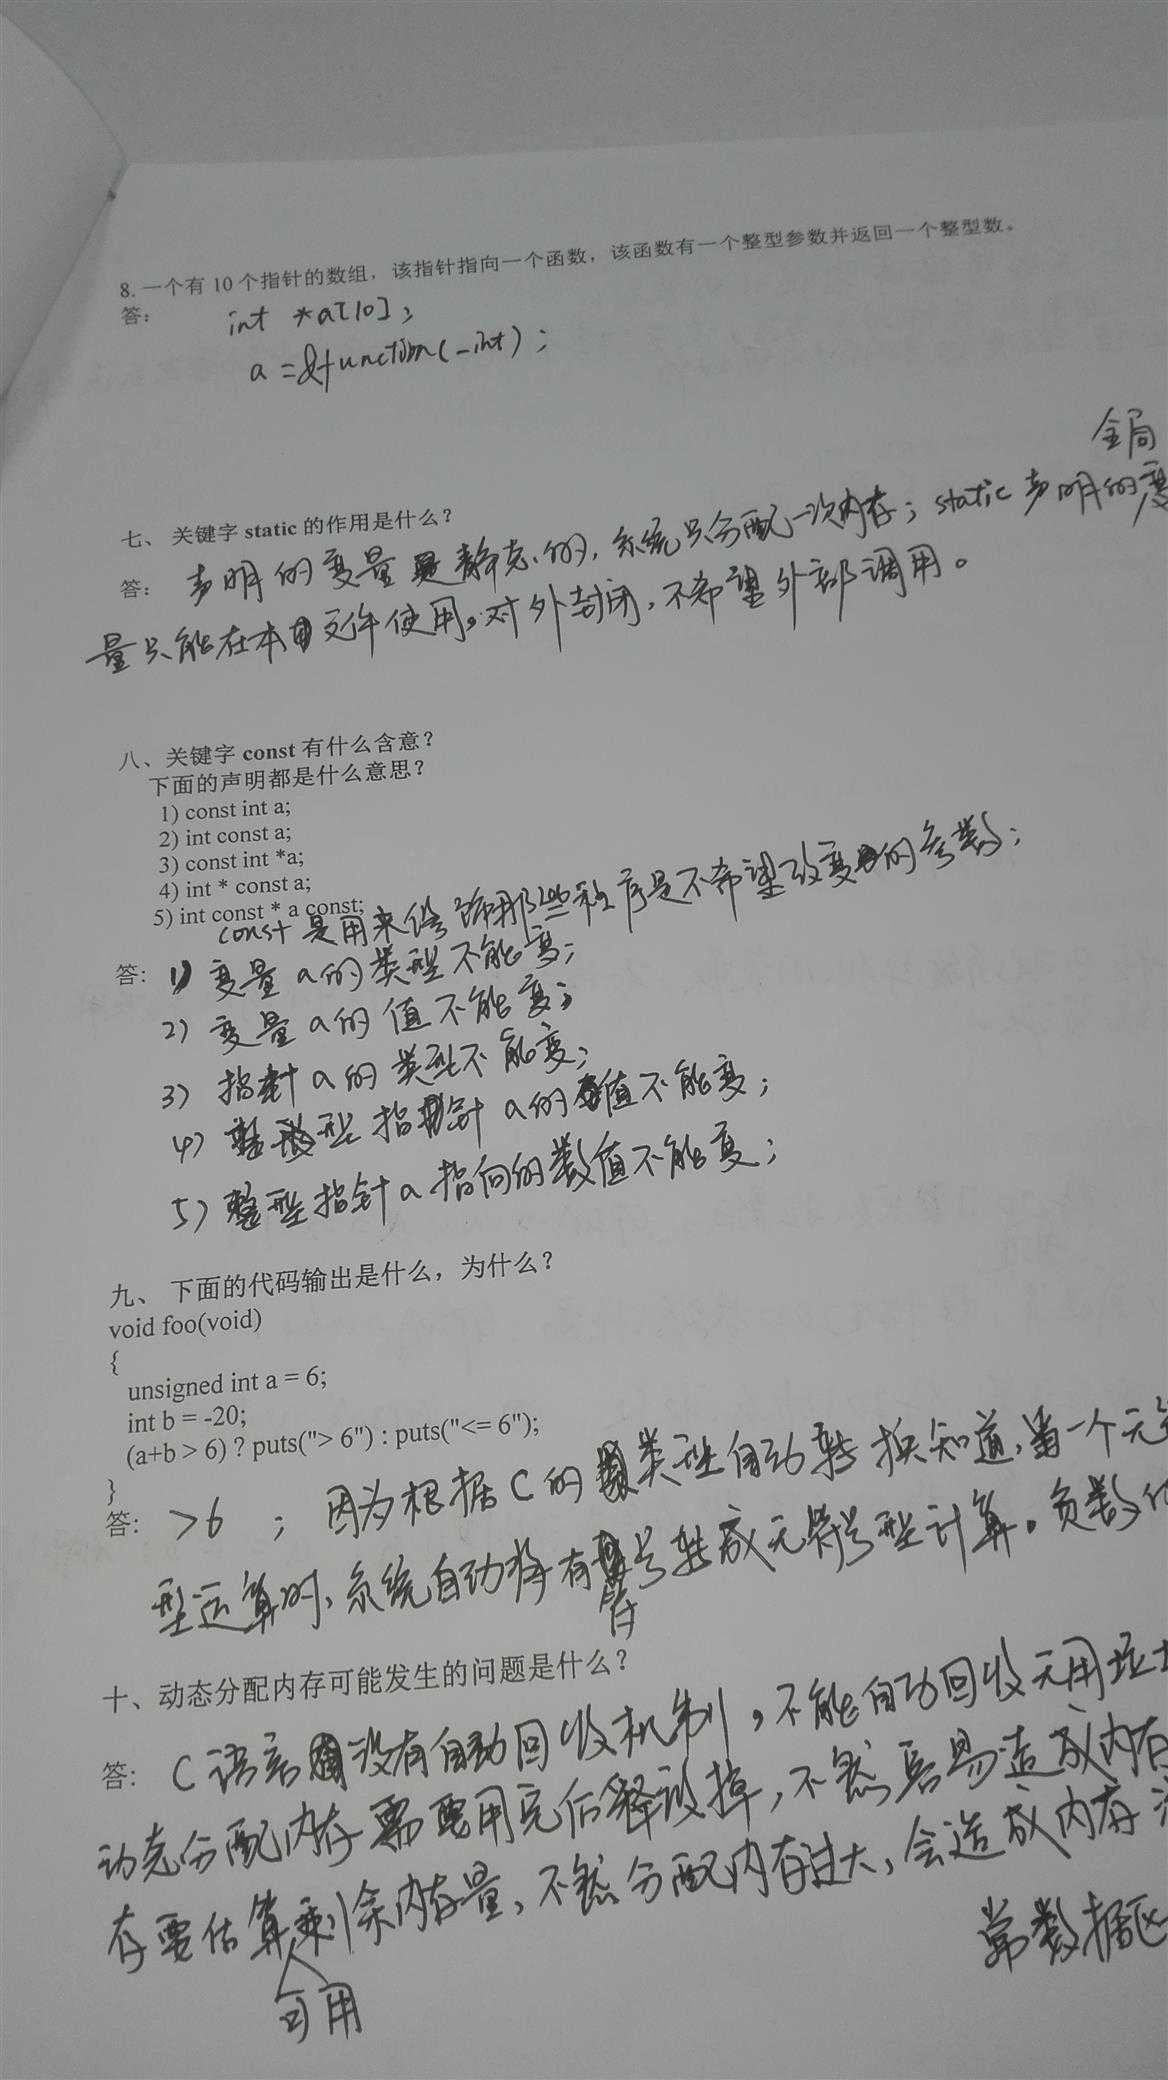 8. 一个有 10 个指针的数组，该指针指向一个函数，该函数有一个整型参数并返回一个整型数。
答： int *a[10];
a = &function(_int);
全局
七、 关键字 static 的作用是什么？
答： 声明的变量是静态的，系统只分配一次内存；static 声明的变
量只能在本文件使用。对外封闭，不希望外部调用。
八、关键字 const 有什么含意？
下面的声明都是什么意思？
1) const int a;
2) int const a;
3) const int *a;
4) int * const a;
5) int const * a const;
const 是用来修饰那些程序是不希望改变的参数；
答: 1) 变量 a 的类型不能变；
2) 变量 a 的值不能变；
3) 指针 a 的类型不能变；
4) 整型指针 a 的值不能变；
5) 整型指针 a 指向的数值不能变；
九、 下面的代码输出是什么，为什么？
void foo(void)
{
unsigned int a = 6;
int b = -20;
(a+b > 6) ? puts("> 6") : puts("<= 6");
}
答: >6 ； 因为根据 C 的类型自动转换知道，当一个无
型运算时，系统自动将有符号转成无符号型计算。负数
十、动态分配内存可能发生的问题是什么？
答: C 语言没有自动回收机制，不能自动回收无用垃
动态分配内存需要用完后释放掉，不然容易造成内存
存要估算剩余内存量，不然分配内存过大，会造成内存
可用
常数据区